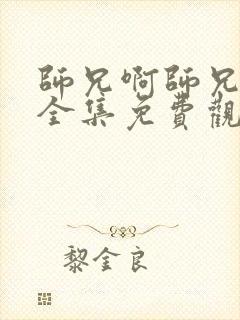 師兄啊師兄
全集免費觀
黎金良